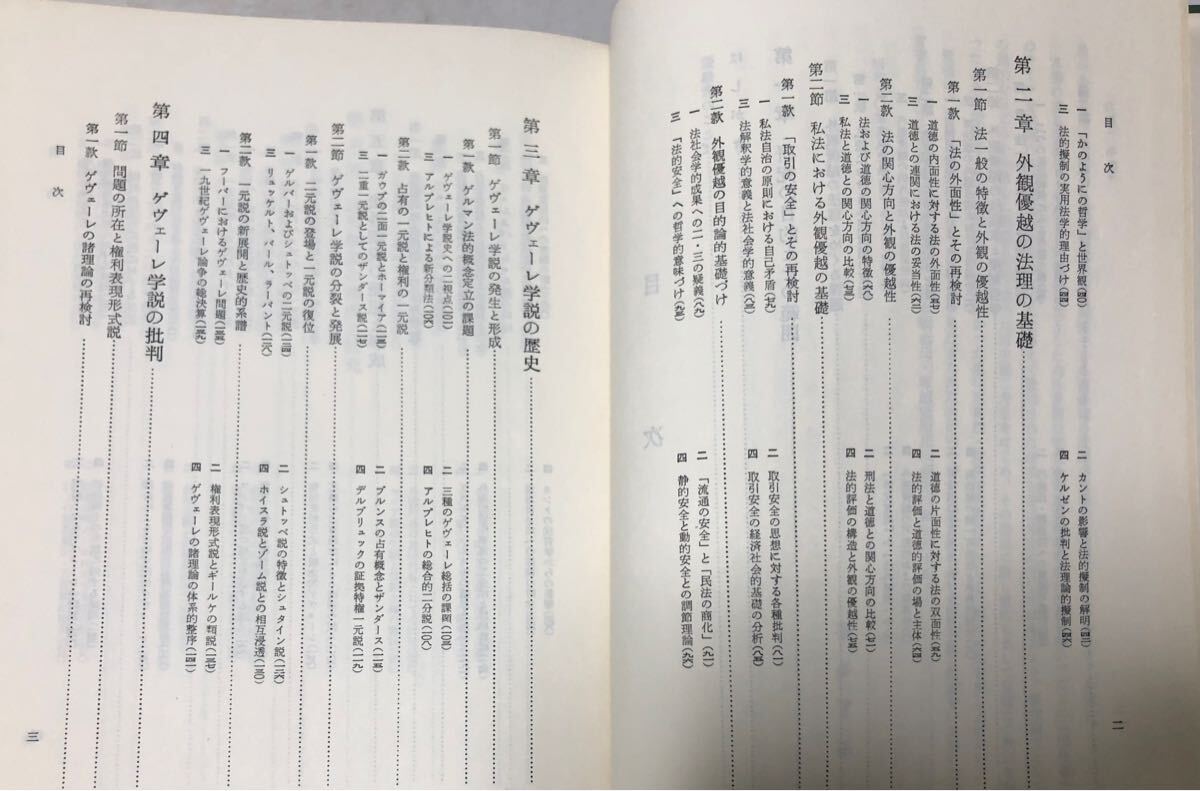 目次
一 「かのようにの哲学」と世界観(四〇)
二 カントの影響と法的擬制の解明(四二)
三 法的擬制の実用法学的理由づけ(四四)
四 ケルゼンの批判と法理論的擬制(四六)
第二章 外観優越の法理の基礎
第一節 法一般の特徴と外観の優越性
第一款 「法の外面性」とその再検討
一 道徳の内面性に対する法の外面性(五七)
二 道徳の片面性に対する法の双面性(五九)
三 道徳との連関における法の妥当性(六二)
四 法的評価と道徳的評価の場と主体(六四)
第二款 法の関心方向と外観の優越性
一 法および道徳の関心方向の特徴(六八)
二 刑法と道徳との関心方向の比較(七一)
三 私法と道徳との関心方向の比較(七三)
四 法的評価の構造と外観の優越性(七五)
第二節 私法における外観優越の基礎
第一款 「取引の安全」とその再検討
一 私法自治の原則における自己矛盾(七九)
二 取引安全の思想に対する各種批判(八一)
三 法解釈学的意義と法社会学的意義(八三)
四 取引安全の経済社会的基礎の分析(八五)
第二款 外観優越の目的論的基礎づけ
一 法社会学的成果への二・三の疑義(八九)
二 「流通の安全」と「民法の商化」(九一)
三 「法的安全」への哲学的意味づけ(九三)
四 静的安全と動的安全との調節理論(九六)
二
第三章 ゲヴェーレ学説の歴史
第一節 ゲヴェーレ学説の発生と形成
第一款 ゲルマン法的概念定立の課題
一 ゲヴェーレ学説史への二視点(一〇一)
二 三種のゲヴェーレ総括の課題(一〇三)
三 アルブレヒトによる新分類法(一〇六)
四 アルブレヒトの総合的二分説(一〇八)
第二款 占有の一元説と権利の一元説
一 ガウプの二面一元説とホーマイア
二 ブルンスの占有概念とザンダース
三 二重一元説としてのザンダース説(一一七)
四 デルブリュックの証拠特権一元説(一一九)
第二節 ゲヴェーレ学説の分裂と発展
第一款 二元説の登場と一元説の復位
一 ゲルバーおよびシュトッベの二元説(一二四)
二 シュトッベ説の特徴とシュタイン説
三 リュッケルト、バール、ラーバント(一二八)
四 ホイスラ説とゾーム説との相互浸透(一三〇)
第二款 一元説の新展開と歴史的系譜
一 フーバーにおけるゲヴェーレ問題(一三五)
二 権利表現形式説とギールケの類説(一三七)
三 一九世紀ゲヴェーレ論争の総決算(一三九)
四 ゲヴェーレの諸理論の体系的整序(一四一)
第四章 ゲヴェーレ学説の批判
第一節 問題の所在と権利表現形式説
第一款 ゲヴェーレの諸理論の再検討
目次
三